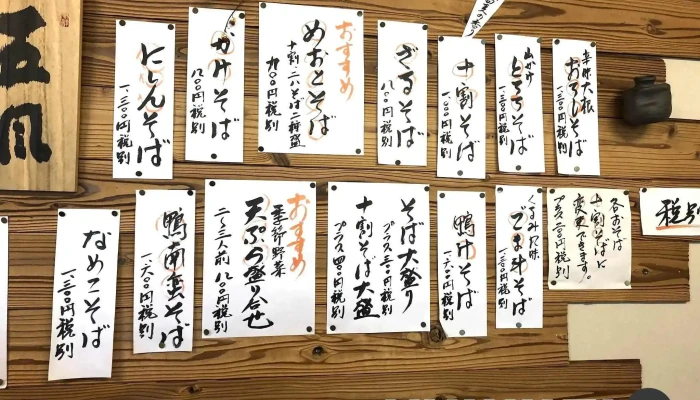 辛味大根
おろしそば
一、三〇〇円税別
山かけ
とろろそば
一、三〇〇円税別
十割そば
一、一〇〇円税別
ざるそば
八〇〇円税別
おすすめ
めおとそば
十割二八そば二種盛
九〇〇円税別
かけそば
八〇〇円税別
にしんそば
一、三〇〇円税別
五風
税別
各おそば
十割そばに
変更できます。
プラス三〇〇円税別
くるみ風味
ごま汁そば
一、一〇〇円税別
鴨汁そば
一、六〇〇円税別
そば大盛り
プラス三〇〇円税別
十割そば大盛
プラス四〇〇円税別
おすすめ
季節野菜
天ぷら盛り合せ
二～三人前 八〇〇円税別
鴨南蛮そば
一、六〇〇円税別
なめこそば
一、三〇〇円税別